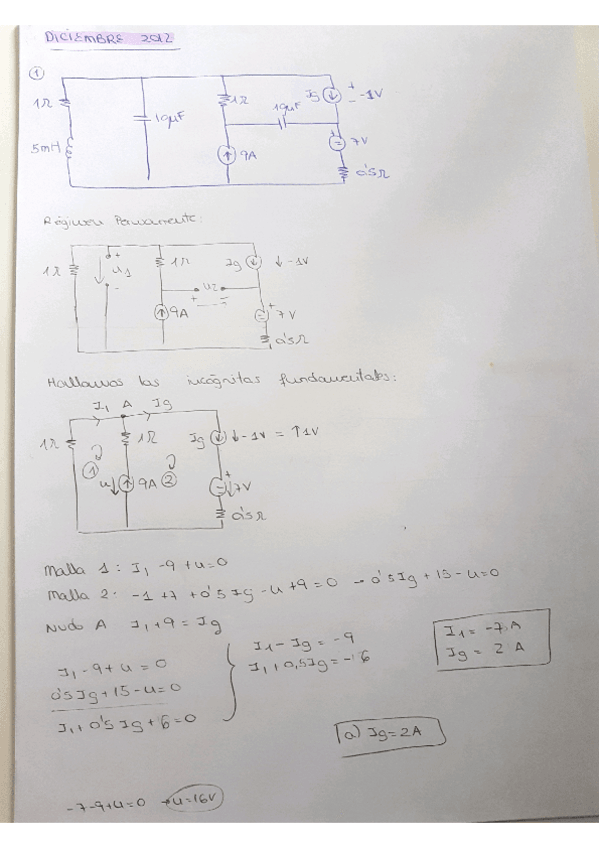 DICIEMBRE 2012
1
1Ω 10μF 1Ω 10μF Ig + - -1V
5mH 9A + 7V
0'5Ω
Régimen Permanente:
1Ω + u1 - 1Ω Ig ↓ -1V
+ u2 -
9A + 7V
0'5Ω
Hallamos las incógnitas fundamentales:
I1 A Ig
1Ω 1Ω Ig ↓ -1V = ↑1V
1 u↓ 9A 2 + ↓7V
0'5Ω
Malla 1: I1 -9 +u=0
Malla 2: -1 +7 +0'5 Ig -u +9 =0 → 0'5Ig +15 -u=0
Nudo A I1 +9 = Ig
I1 -9 + u = 0
0'5Ig +15 -u=0
I1 +0'5 Ig +6=0
I1 - Ig = -9
I1 + 0,5Ig = -6
I1 = -7 A
Ig = 2 A
a) Ig = 2A
-7 -9 +u=0 → u=16V